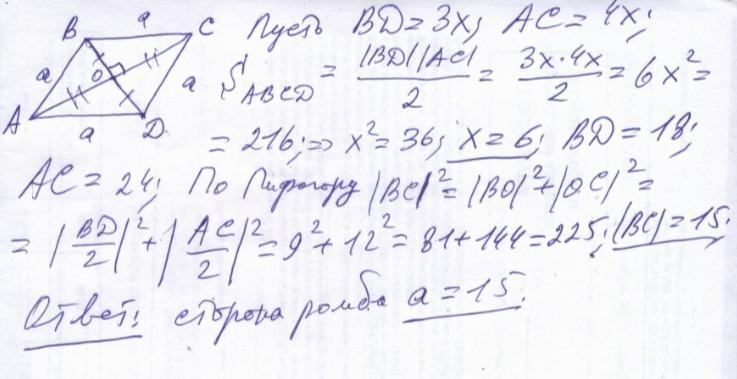 B a C
a O a
A a D
Пусть BD = 3x; AC = 4x;
S ABCD = |BD||AC| / 2 = 3x·4x / 2 = 6x² =
= 216; => x² = 36; x = 6; BD = 18;
AC = 24; По Пифагору |BC|² = |BO|² + |OC|² =
= |BD/2|² + |AC/2|² = 9² + 12² = 81 + 144 = 225; |BC| = 15.
Ответ: сторона ромба a = 15.